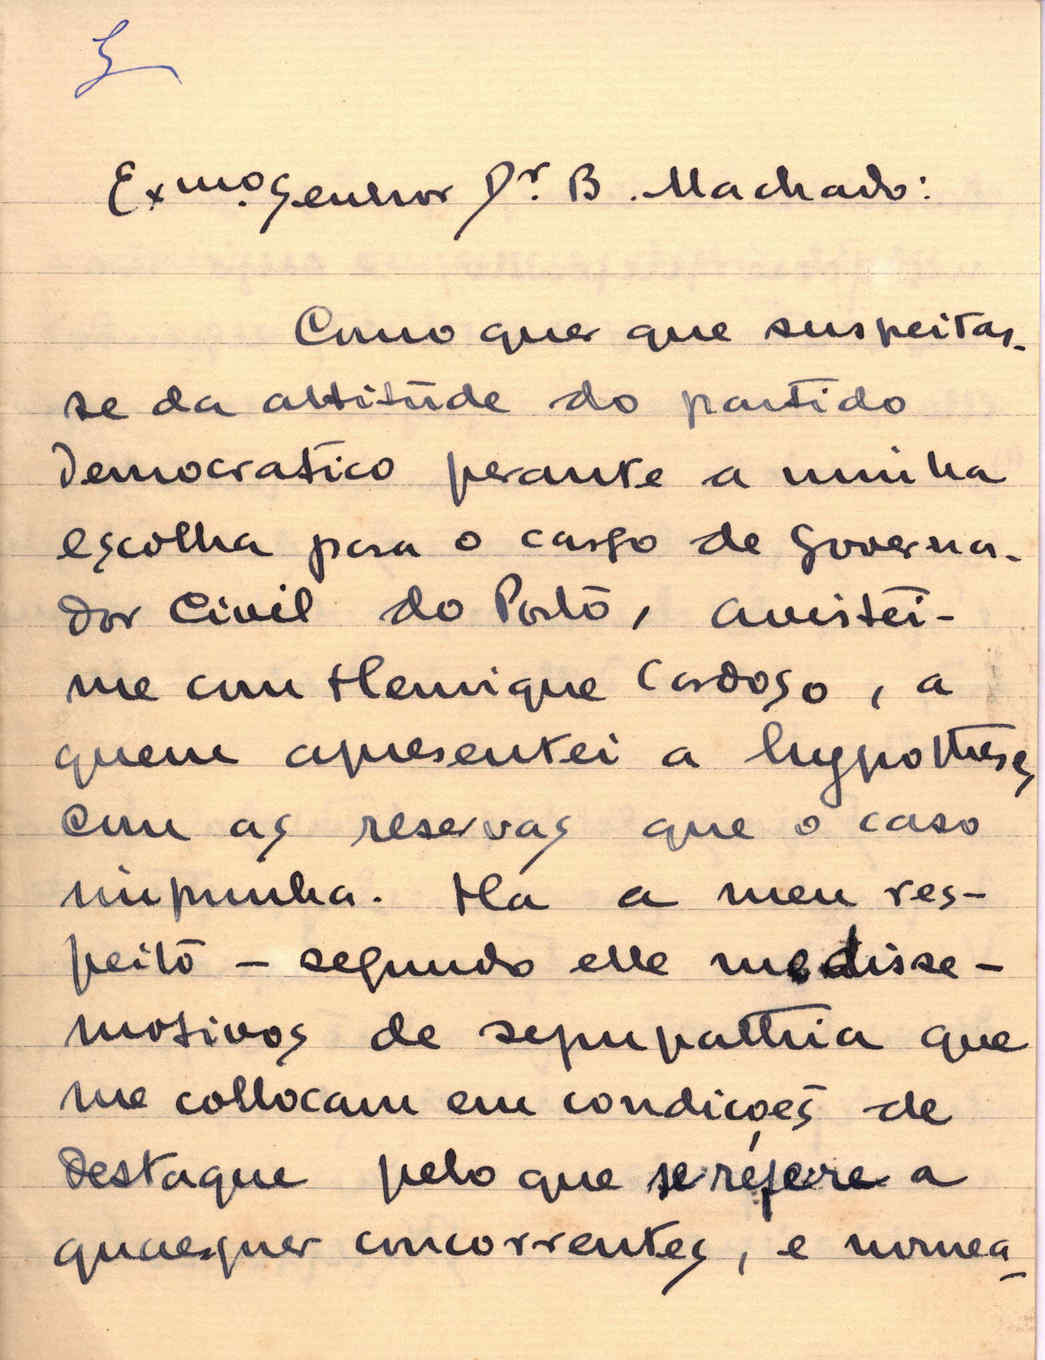 Exmo. Senhor Dr. B. Machado:
Como quer que suspeitas-
se da attitude do partido
Democratico perante a minha
escolha para o cargo de Governa-
dor Civil do Porto, avistei-
me com Henrique Cardoso, a
quem apresentei a hypothese
com as reservas que o caso
impunha. Ha a meu res-
peito – segundo elle me disse –
motivos de sympathia que
me collocam em condições de
destaque pelo que se refere a
quaesquer concorrentes, e nomea-